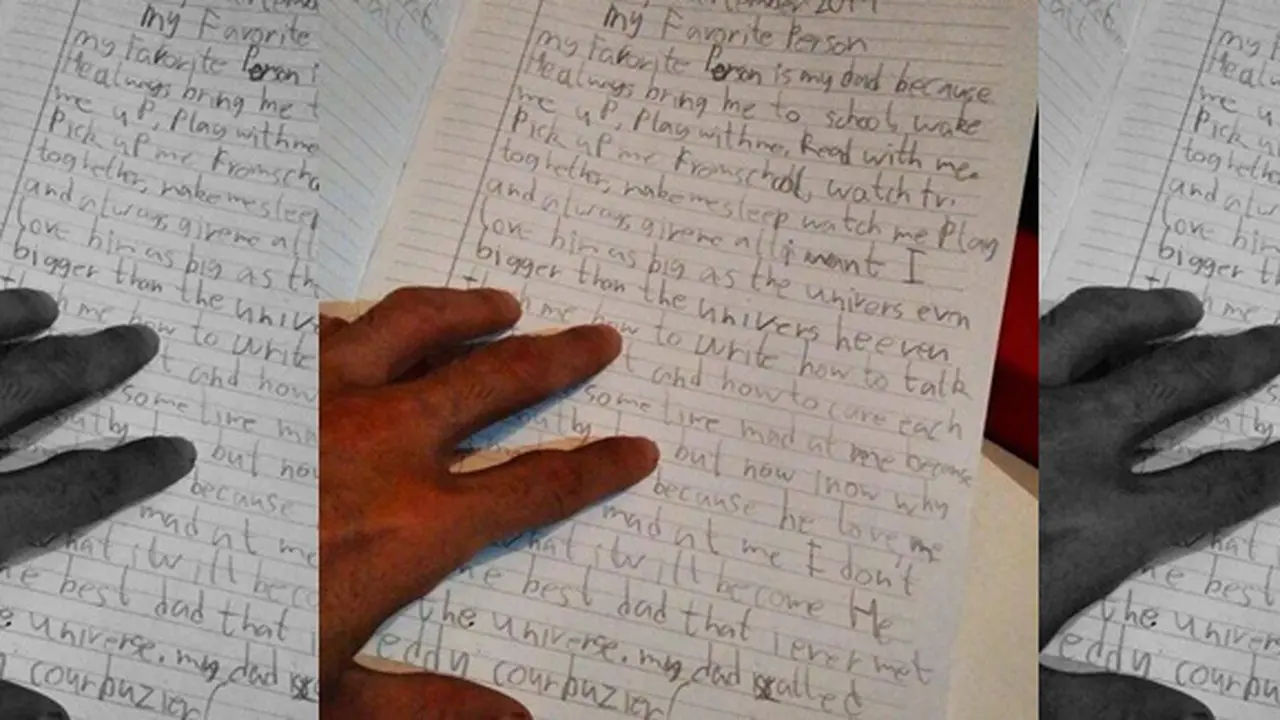 My Favorite Person
my Favorite Person is my dad because
He always bring me to school, wake
me up, Play with me, Read with me.
Pick up me From school, watch tv.
toghether, make me sleep watch me Play
and always give me all i want I
love him as big as the univers evn
bigger than the univers he even
h me how to write how to talk
t and how to care each
some time mad at me because
but now I now why
because he love me
mad at me I don't
hat it will become He
e best dad that i ever met
the universe. my dad is called
eddy courbuzier